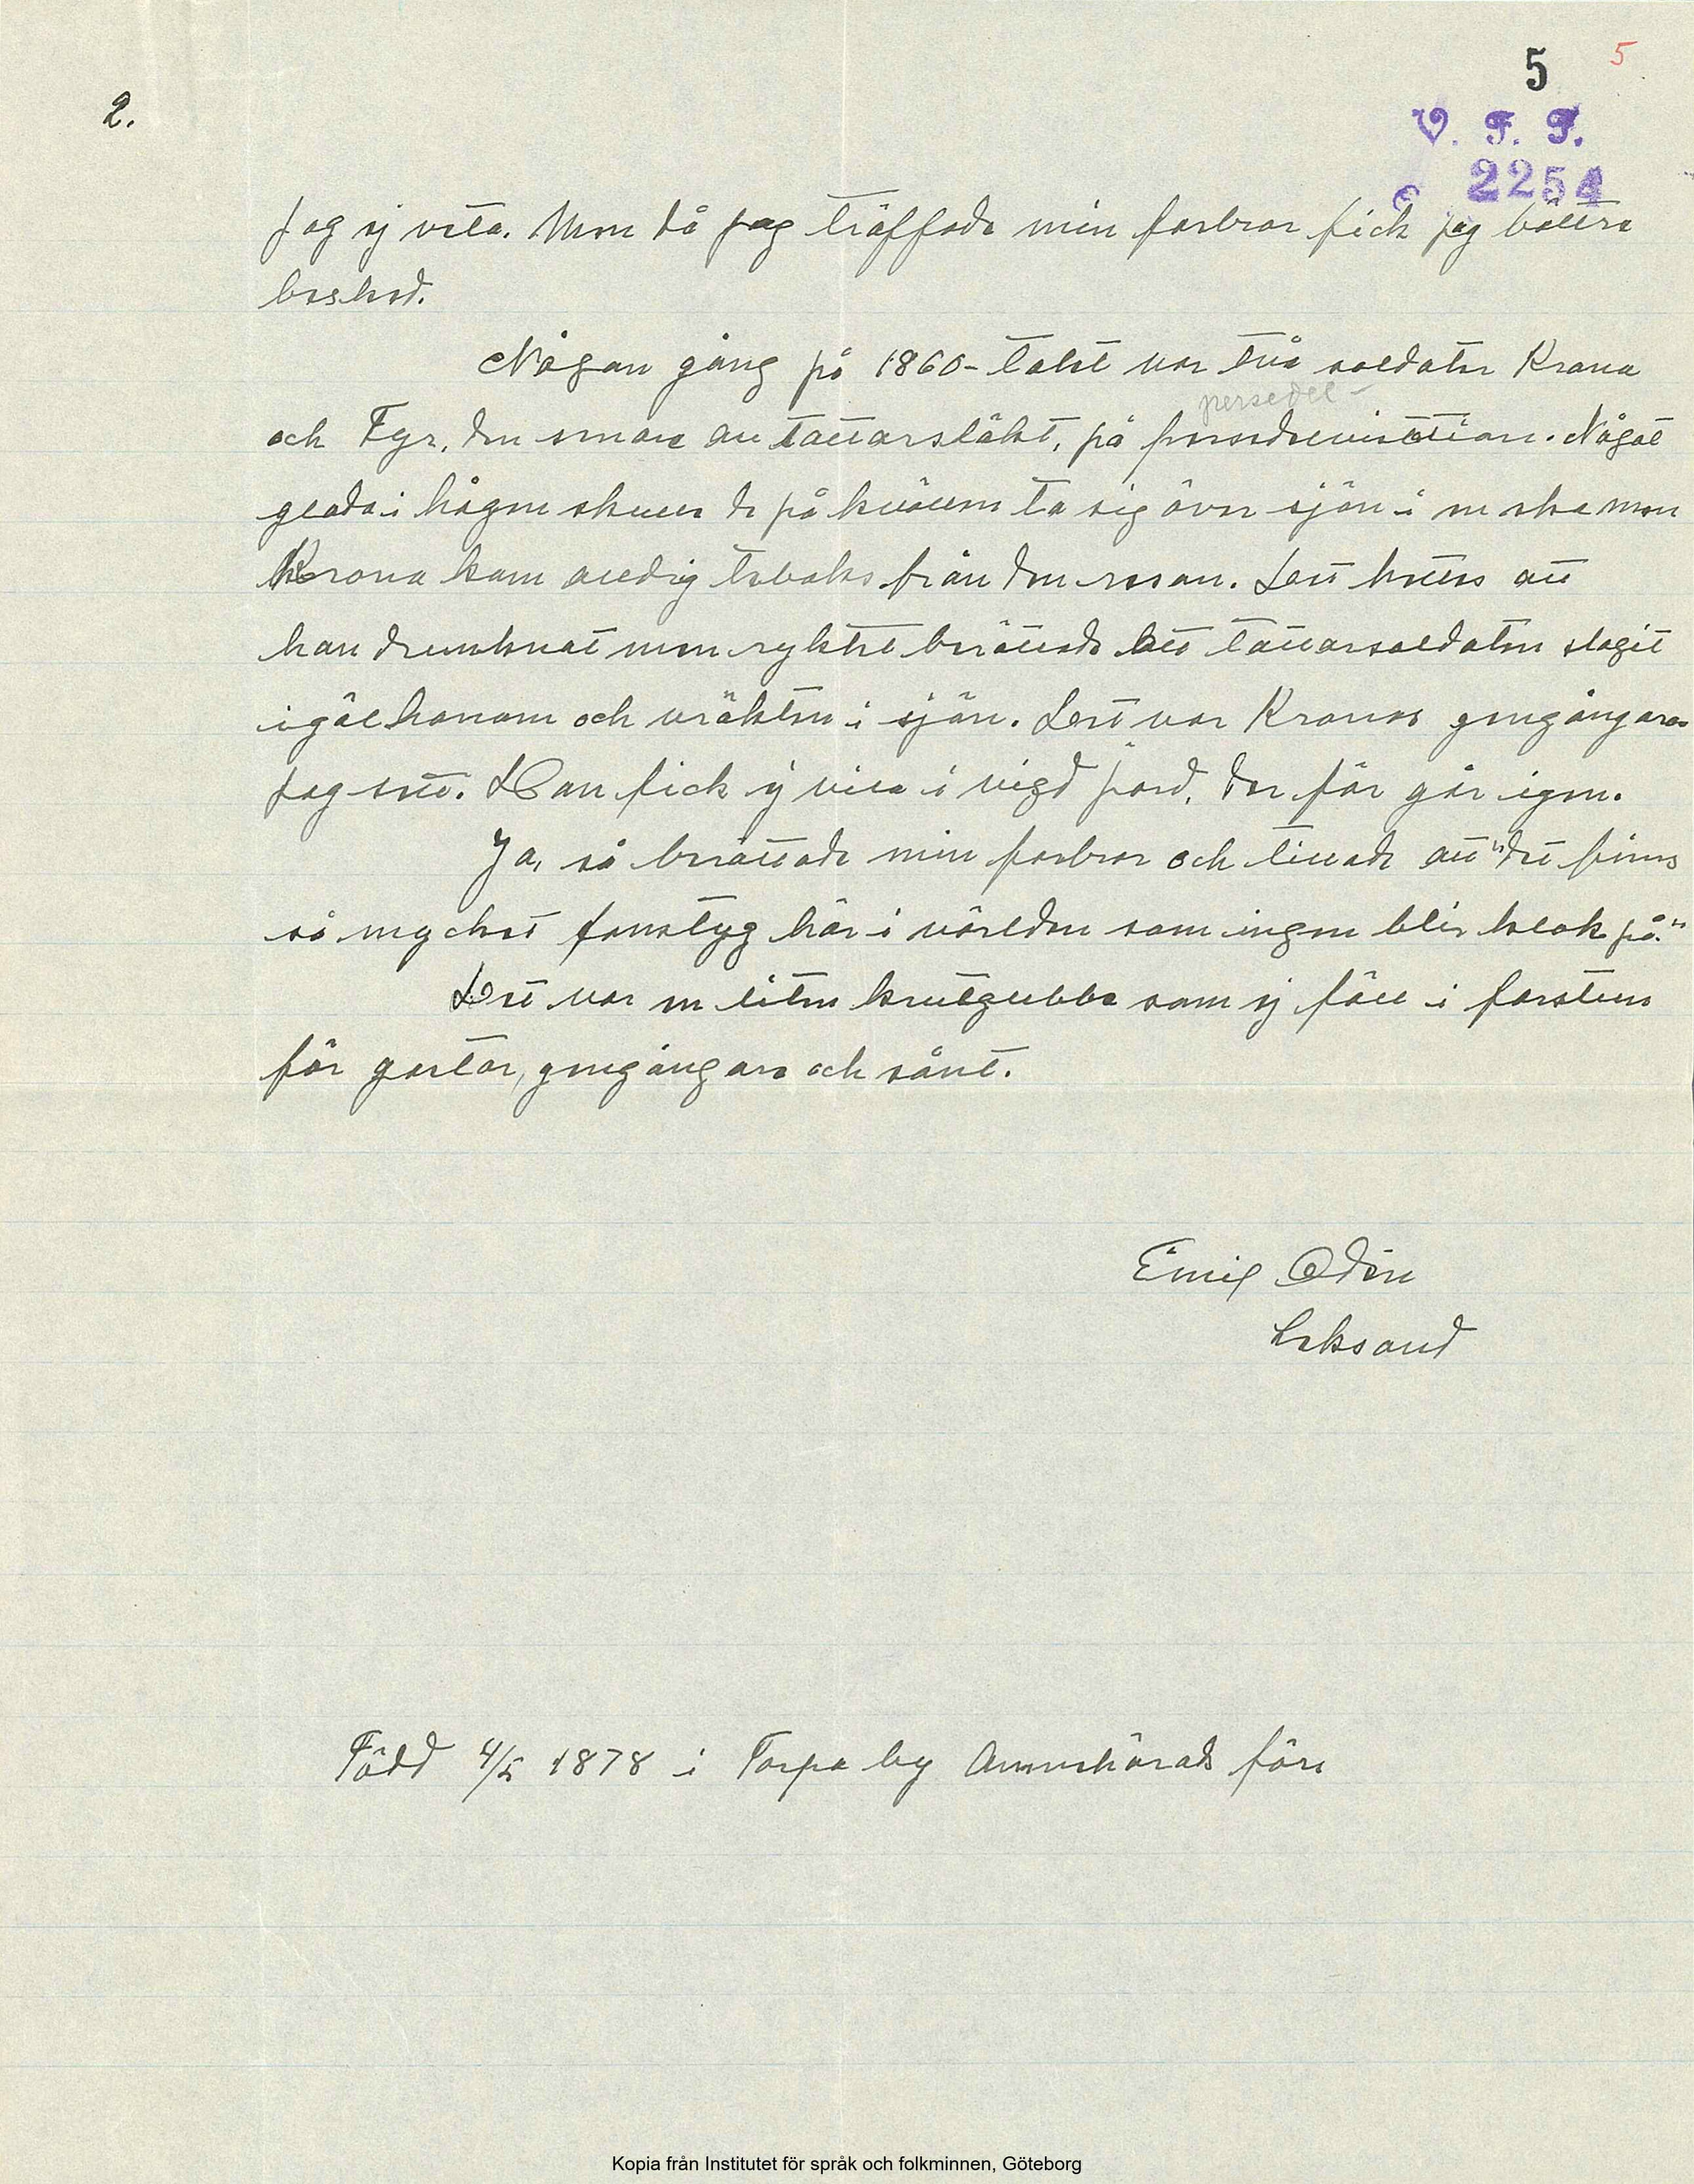 5 5
2.
V. F. F.
2254
jag ej veta. Men då jag träffade min farbror fick jag bättre
besked.
Någon gång på 1860-talet var två soldater Krona
persedel-
och Fyr, den senare av tattarsläkt, på visitation. Något
glada i hågen skulle de på kvällen ta sig över sjön i en eka men
Krona kom aldrig tebaks från den resan. Det hette att
han drunknat men ryktet berättade att tattarsoldaten slagit
ihjäl honom och vräkten i sjön. Det var Kronas gengångare
jag sett. Han fick ej vila i vigd jord, der för går igen.
Ja, så berättade min farbror och tillade att "det finns
så mycket fanstyg här i världen som ingen blir klok på."
Det var en liten krutgubbe som ej föll i farstun
för gastar, gengångare och sånt.
Emil Odén
Leksand
Född 4/5 1878 i Torpa by Amnehärads förs
Kopia från Institutet för språk och folkminnen, Göteborg